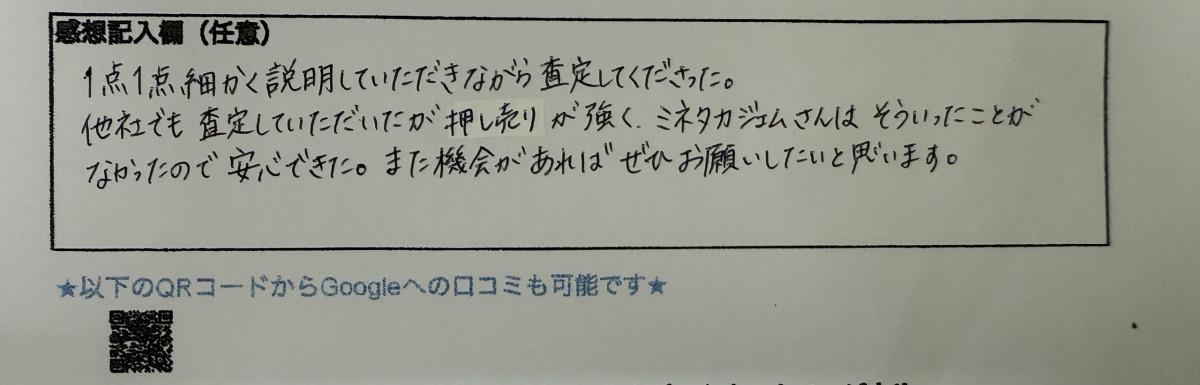 感想記入欄（任意）
1点1点細かく説明していただきながら査定してくださった。
他社でも査定していただいたが押し売りが強く、ミネタカジェムさんはそういったことが
なかったので安心できた。また機会があればぜひお願いしたいと思います。
★以下のQRコードからGoogleへの口コミも可能です★